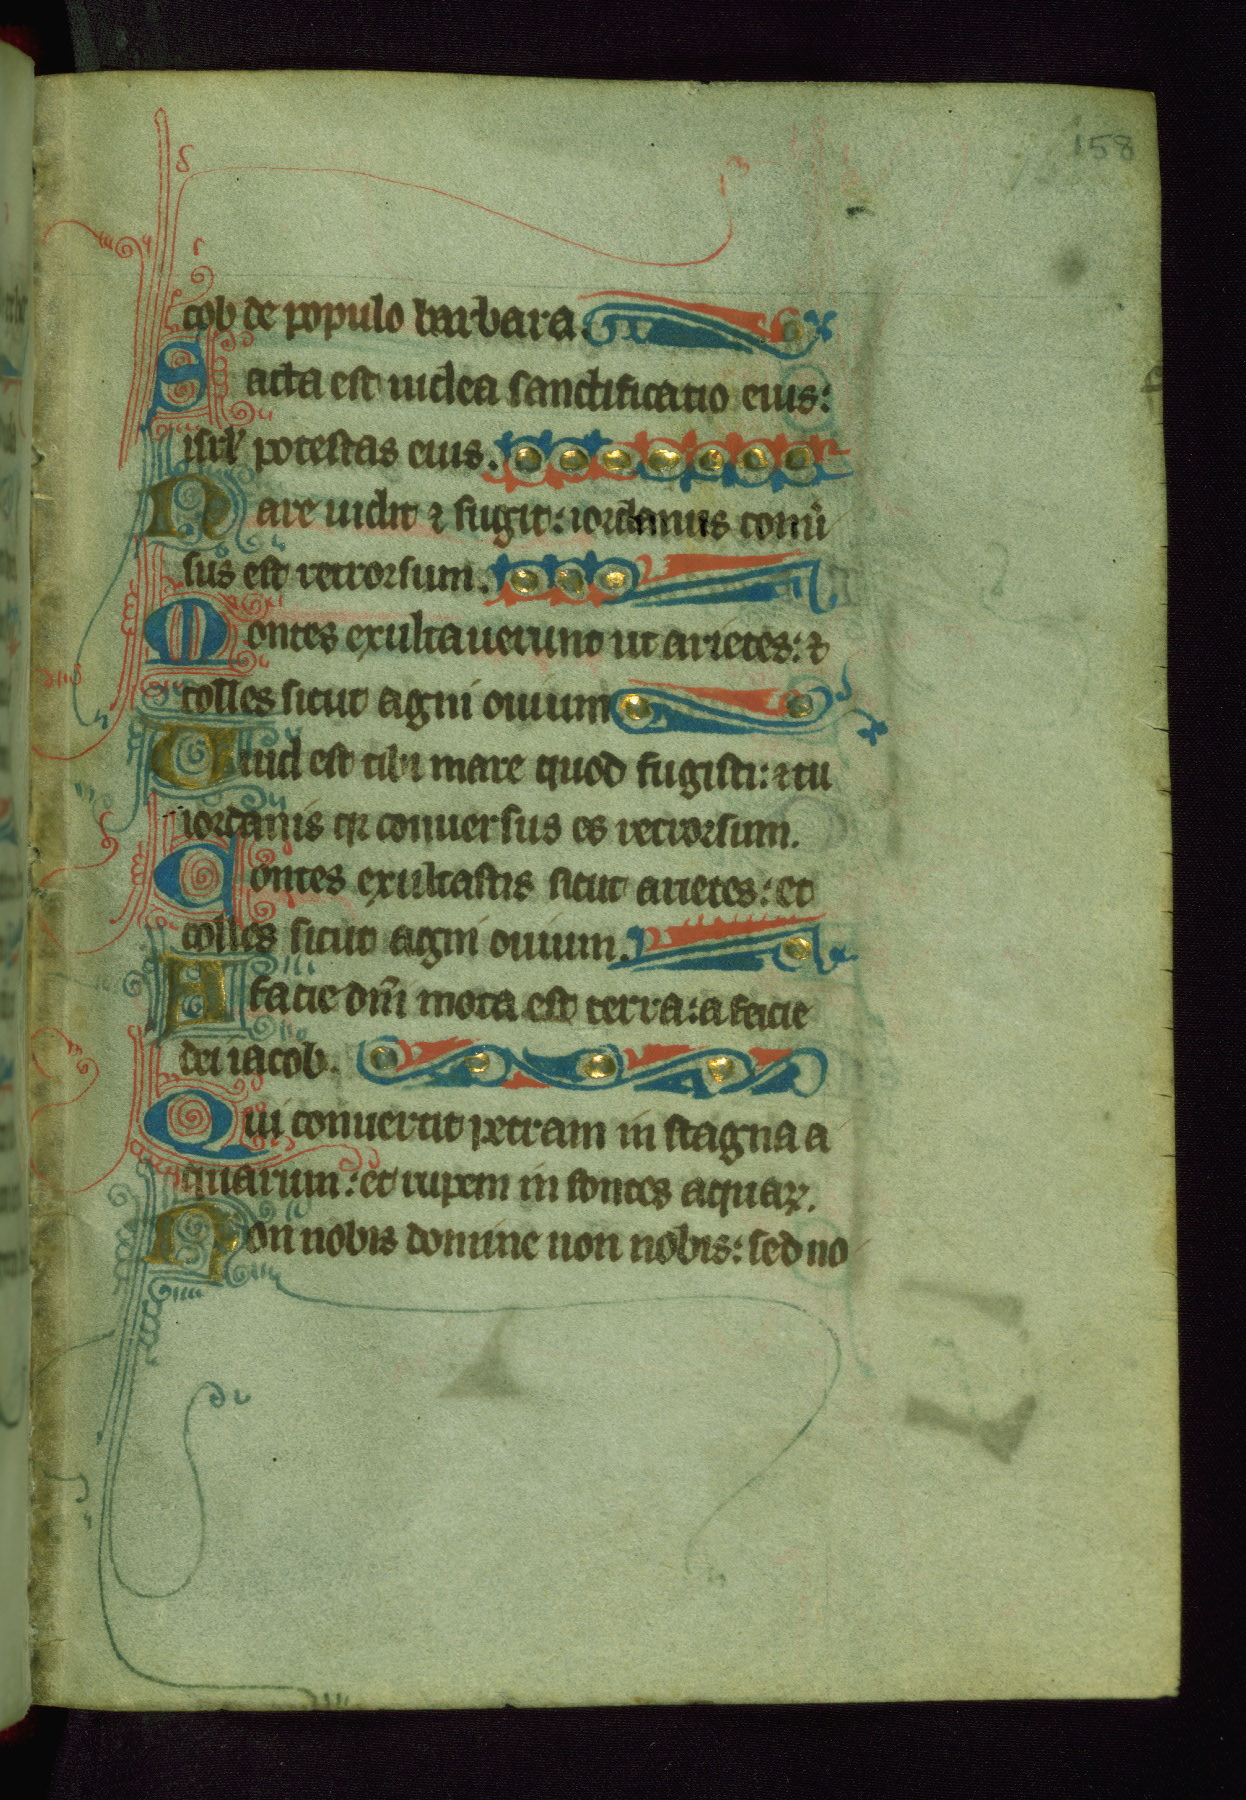 158
cob de populo barbara.
Sacta est iudea sanctificatio eius:
isrl̄ potestas eius.
Mare uidit ⁊ fugit: iordanus conū
sus est retrorsum.
Montes exultauerunt ut arietes: ⁊
colles sicut agni ouium
Quid est tibi mare quod fugisti: ⁊ tu
iordanis qr conuersus es retrorsum.
ontes exultastis sicut arietes: et
colles sicut agni ouium.
A facie dn̄i mota est terra: a facie
dei iacob.
Qui conuertit petram in stagna a
quarum: et rupem in fontes aquaꝝ.
Non nobis domine non nobis: sed no